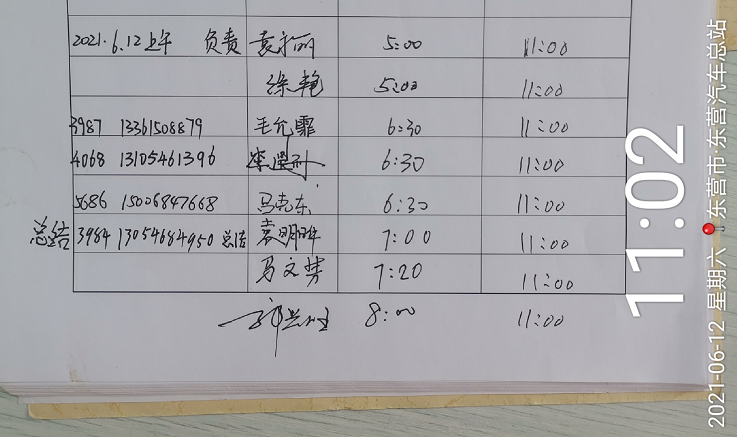 2021.6.12上午 负责 袁利丽 5:00 11:00
徐艳 5:00 11:00
3987 13361508879 毛允霏 6:30 11:00
4068 13105461396 6:30 11:00
5686 15006847668 马克东 6:30 11:00
总结 3984 13054684950 总结 袁明晖 7:00 11:00
马文梦 7:20 11:00
8:00 11:00
11:02
2021-06-12 星期六 东营市 东营汽车总站